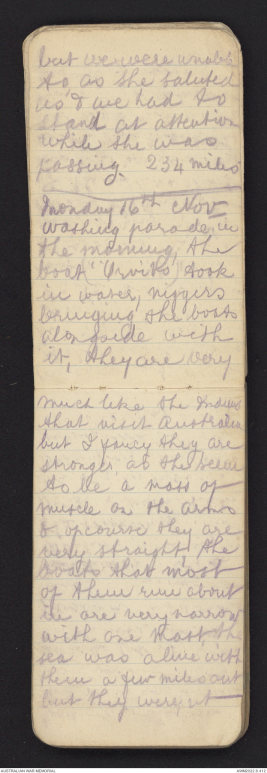 but we were unable
to as she saluted
us & we had to
stand at attention
while she was
passing. 234 miles
Monday 16th Nov
washing parade in
the morning, the
boat (Orvito) took
in water, niggers
bringing the boats
alongside with
it, they are very
much like the Indians
that visit Australia
but I fancy they are
stronger, as the seem
to be a mass of
muscle on the arms
& ofcourse they are
very straight, the
boats that most
of them run about
in are very narrow
with one mast, the
sea was alive with
them a few miles out
but they were,nt
AUSTRALIAN WAR MEMORIAL